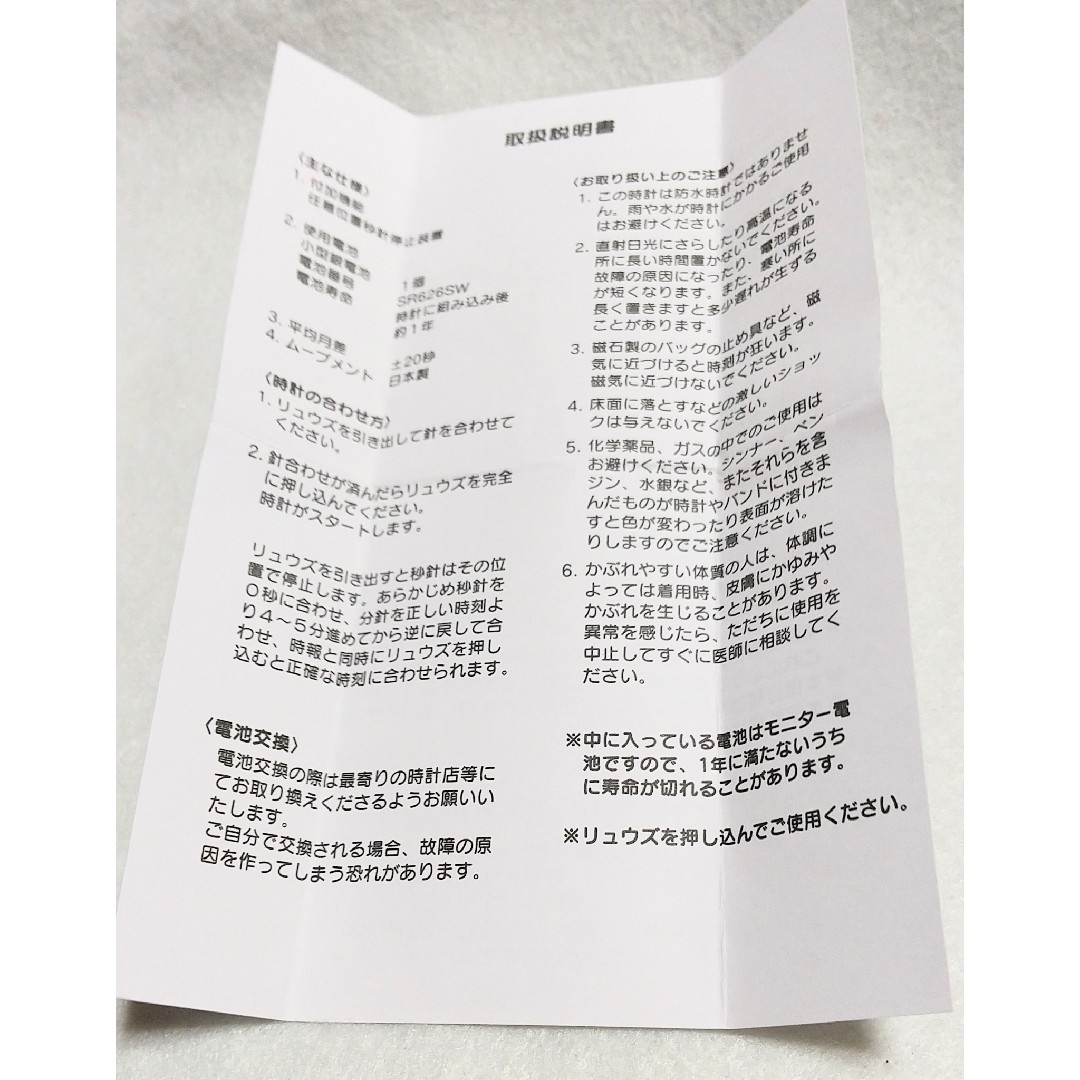 取扱説明書
〈主な仕様〉
1. 付加機能
任意位置秒針停止装置
2. 使用電池
小型銀電池 1個
電池番号 SR626SW
電池寿命 時計に組み込み後
約1年
3. 平均月差 ±20秒
4. ムーブメント 日本製
〈時計の合わせ方〉
1. リュウズを引き出して針を合わせて
ください。
2. 針合わせが済んだらリュウズを完全
に押し込んでください。
時計がスタートします。
リュウズを引き出すと秒針はその位
置で停止します。あらかじめ秒針を
0秒に合わせ、分針を正しい時刻よ
り4～5分進めてから逆に戻して合
わせ、時報と同時にリュウズを押し
込むと正確な時刻に合わせられます。
〈電池交換〉
電池交換の際は最寄りの時計店等に
てお取り換えくださるようお願いい
たします。
ご自分で交換される場合、故障の原
因を作ってしまう恐れがあります。
〈お取り扱い上のご注意〉
1. この時計は防水時計ではありませ
ん。雨や水が時計にかかるご使用
はお避けください。
2. 直射日光にさらしたり高温になる
所に長い時間置かないでください。
故障の原因になったり、電池寿命
が短くなります。また、寒い所に
長く置きますと多少遅れが生ずる
ことがあります。
3. 磁石製のバッグの止め具など、磁
気に近づけると時刻が狂います。
磁気に近づけないでください。
4. 床面に落とすなどの激しいショッ
クは与えないでください。
5. 化学薬品、ガスの中でのご使用は
お避けください。シンナー、ベン
ジン、水銀など、またそれらを含
んだものが時計やバンドに付きま
すと色が変わったり表面が溶けた
りしますのでご注意ください。
6. かぶれやすい体質の人は、体調に
よっては着用時、皮膚にかゆみや
かぶれを生じることがあります。
異常を感じたら、ただちに使用を
中止してすぐに医師に相談してく
ださい。
※中に入っている電池はモニター電
池ですので、1年に満たないうち
に寿命が切れることがあります。
※リュウズを押し込んでご使用ください。